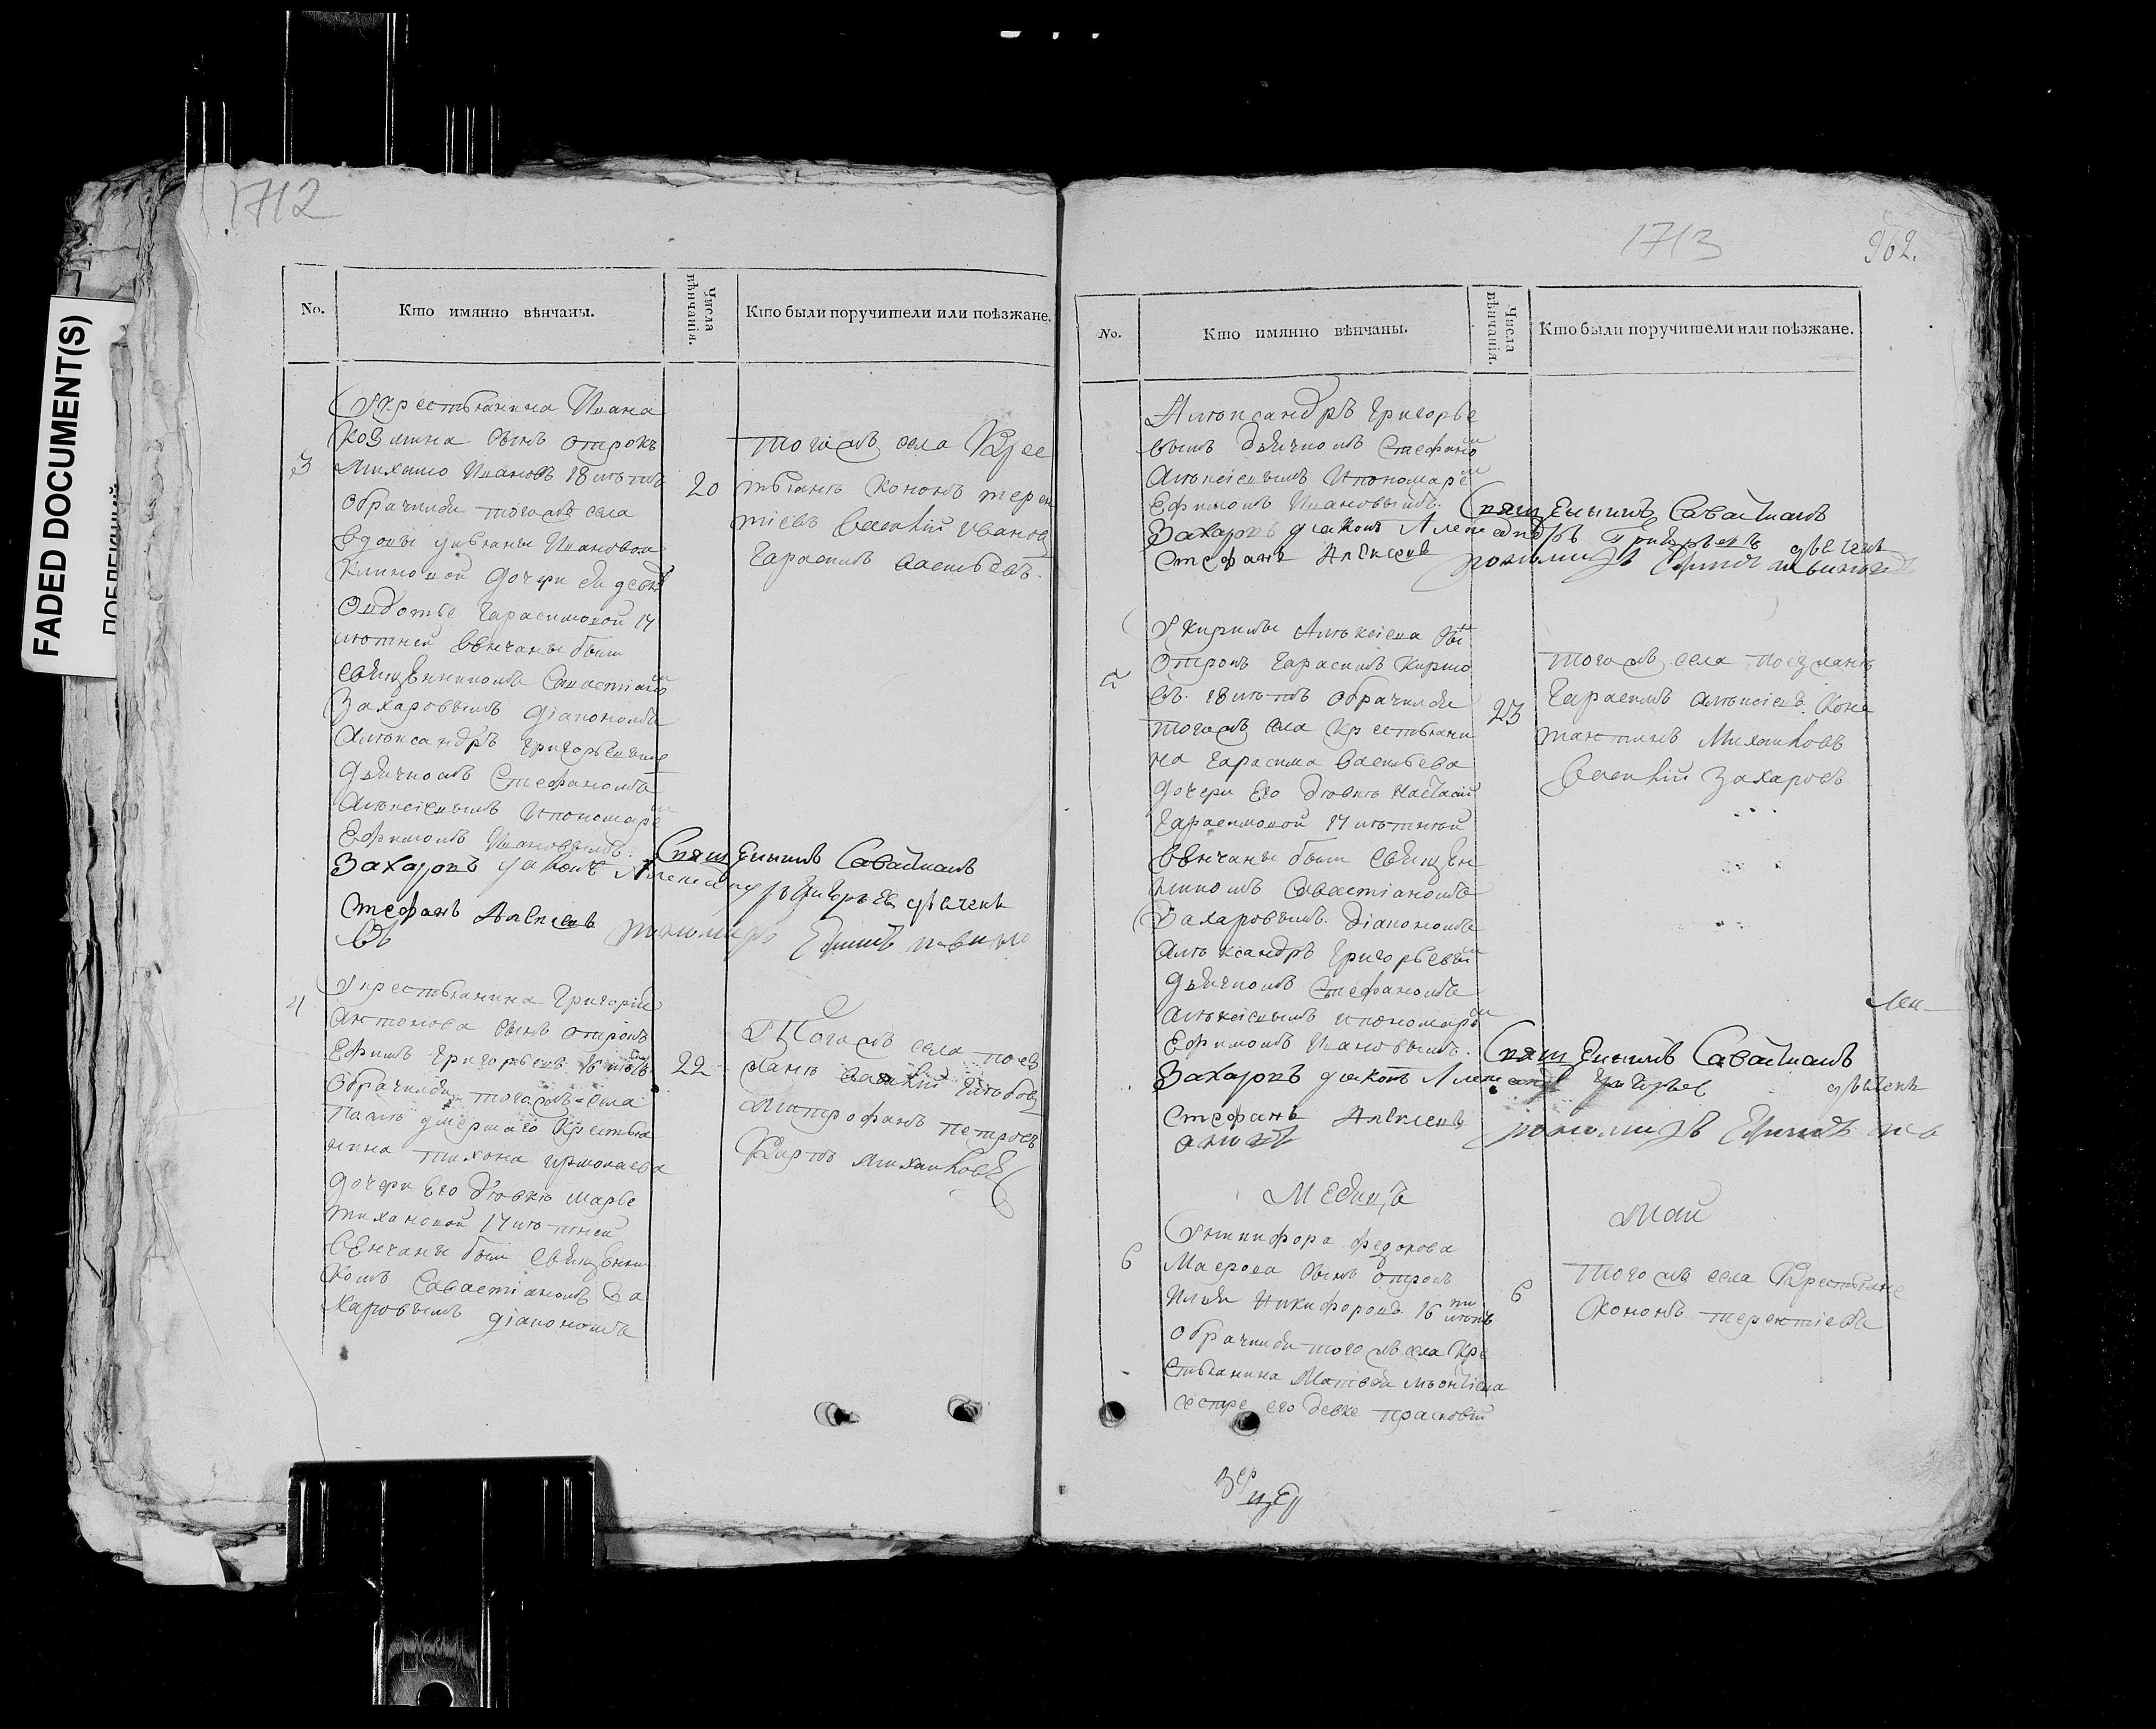 FADED DOCUMENT(S)
1712
No.
Кто имянно вѣнчаны.
Числа вѣнчанія.
Кто были поручители или поѣзжане.
У крестьянина Ивана
Козмина сынъ отрокъ
3
Михаило Ивановъ 18 лѣтъ
обрачился тогожъ села
вдовы Ивановой
дочери
Овдотье Гарасимовой 17
лѣтней венчаны были
священникомъ Савастіаном
Захаровымъ діакономъ
Александръ Григорьевым
дьячкомъ Стефаномъ
Алексіевымъ пономаре
Ефимомъ Ивановымъ
20
тогожъ села Крес
тьянъ Кононъ терен
тіевъ Василій Иванов
Гарасимъ Васильевъ
Свящ Енникъ Савастианъ
Захаровъ диаконъ Александръ Григорьев дьячекъ
Стефанъ Алексеевъ пономарь Ефимъ Иванов
4
У крестьянина Григория
Антонова сынъ отрокъ
Ефимъ Григорьевъ 16 лѣтъ
обрачился тогожъ села
умершаго Крестья
нина тихона
дочери Его дѣвкѣ Марье
тихановой 17 лѣтней
венчаны были священни
комъ Савастіаномъ За
харовымъ діакономъ
22
Тогожъ села поез
жанѣ Василий Глѣбов
Митрофанъ Петровъ
Карпъ Михаиловъ
1713
962.
No.
Кто имянно вѣнчаны.
Числа вѣнчанія.
Кто были поручители или поѣзжане.
Александръ Григорье
вымъ дьячкомъ Стефано
Алексіевымъ пономаре
Ефимомъ Ивановымъ.
Свящ Енникъ Савастианъ
Захаровъ диаконъ Александръ Григорьевъ дьячекъ
Стефанъ Алексеев пономарь Ефимъ Иванов
У Кирилы Алексіева сы
5
отрокъ Гарасимъ Кирило
въ 18 лѣтъ обрачился
тогожъ села крестьяни
на Гарасима Васильева
дочери Его дѣвкѣ Настасіи
Гарасимовой 17 лѣтней
венчаны были священ
никомъ Савастіаномъ
Захаровымъ діакономъ
Александръ Григорьевы
дьячкомъ Стефаномъ
Алексіевымъ пономаре
Ефимомъ Ивановымъ.
23
тогожъ села поезжанѣ
Гарасимъ Алексіевъ. Конс
тантинъ Михаиловъ
Василій Захаровъ
Свящ Енникъ Савастианъ
Захаровъ диаконъ Александ Григорьев дьячекъ
Стефанъ Алексеевъ пономарь Ефимъ
Месяцъ
Май
6
У Никифора Федорова
сынъ отрокъ
Илья Никифоровъ 16 лѣтъ
обрачился тогожъ села кре
стьянина Матвея
сестре его девке Прасковіи
6
тогожъ села Крестьяне
Кононъ терентіевъ